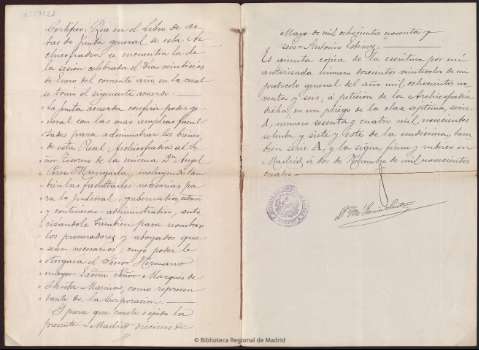 Certifico: Que en el Libro de ac-
tas de Junta general de esta Ar-
chicofradía se encuentra la de
la sesión celebrada el día veintiséis de
Enero del corriente año en la cual
se tomó el siguiente acuerdo.
La Junta acuerda conferir poder ge-
neral con las más amplias facul-
tades para administrar los bienes
de esta Real Archicofradía al Se-
ñor Tesorero de la misma Dn. Angel
Pérez, incluyendo tam-
bién las facultades necesarias pa-
ra lo judicial, gubernativo
y contencioso administrativo, auto-
rizándole también para nombrar
los procuradores y abogados que
sean necesarios; cuyo poder le
otorgará el Señor Hermano
mayor Excmo. Señor Marqués de
como represen-
tante de la Corporación.
Y para que conste expido la
presente en Madrid diecisiete de
Mayo de mil ochocientos noventa y
seis= Antonio
Es segunda copia de la escritura por mí
autorizada número doscientos veintiocho de mi
protocolo general del año mil ochocientos no-
venta y seis, a petición de la Archicofradía
dicha, en un pliego de la clase séptima, serie
A, número sesenta y cuatro mil novecientos
ochenta y siete y este de la undécima, tam-
bién serie A, y la signo, firmo y rubrico en
Madrid, a dos de de mil novecientos
cuatro.
© Biblioteca Regional de Madrid